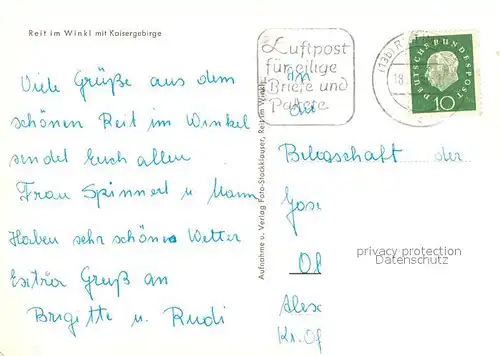 Reit im Winkl mit Kaisergebirge
Viele Grüße aus dem
schönen Reit im Winkel
sendet Euch allen
Frau Spinnert u Mann
Haben sehr schönes Wetter
Extra Gruß an
Brigitte u. Rudi
Aufnahme u. Verlag Foto-Stocklauser, Reit im Winkl
Luftpost
für eilige
Briefe und
Pakete
(13b) R
18.
DEUTSCHE BUNDESPOST
10
An
die
Belegschaft der
Jose
Of
Alex
Kr. Of
privacy protection
Datenschutz